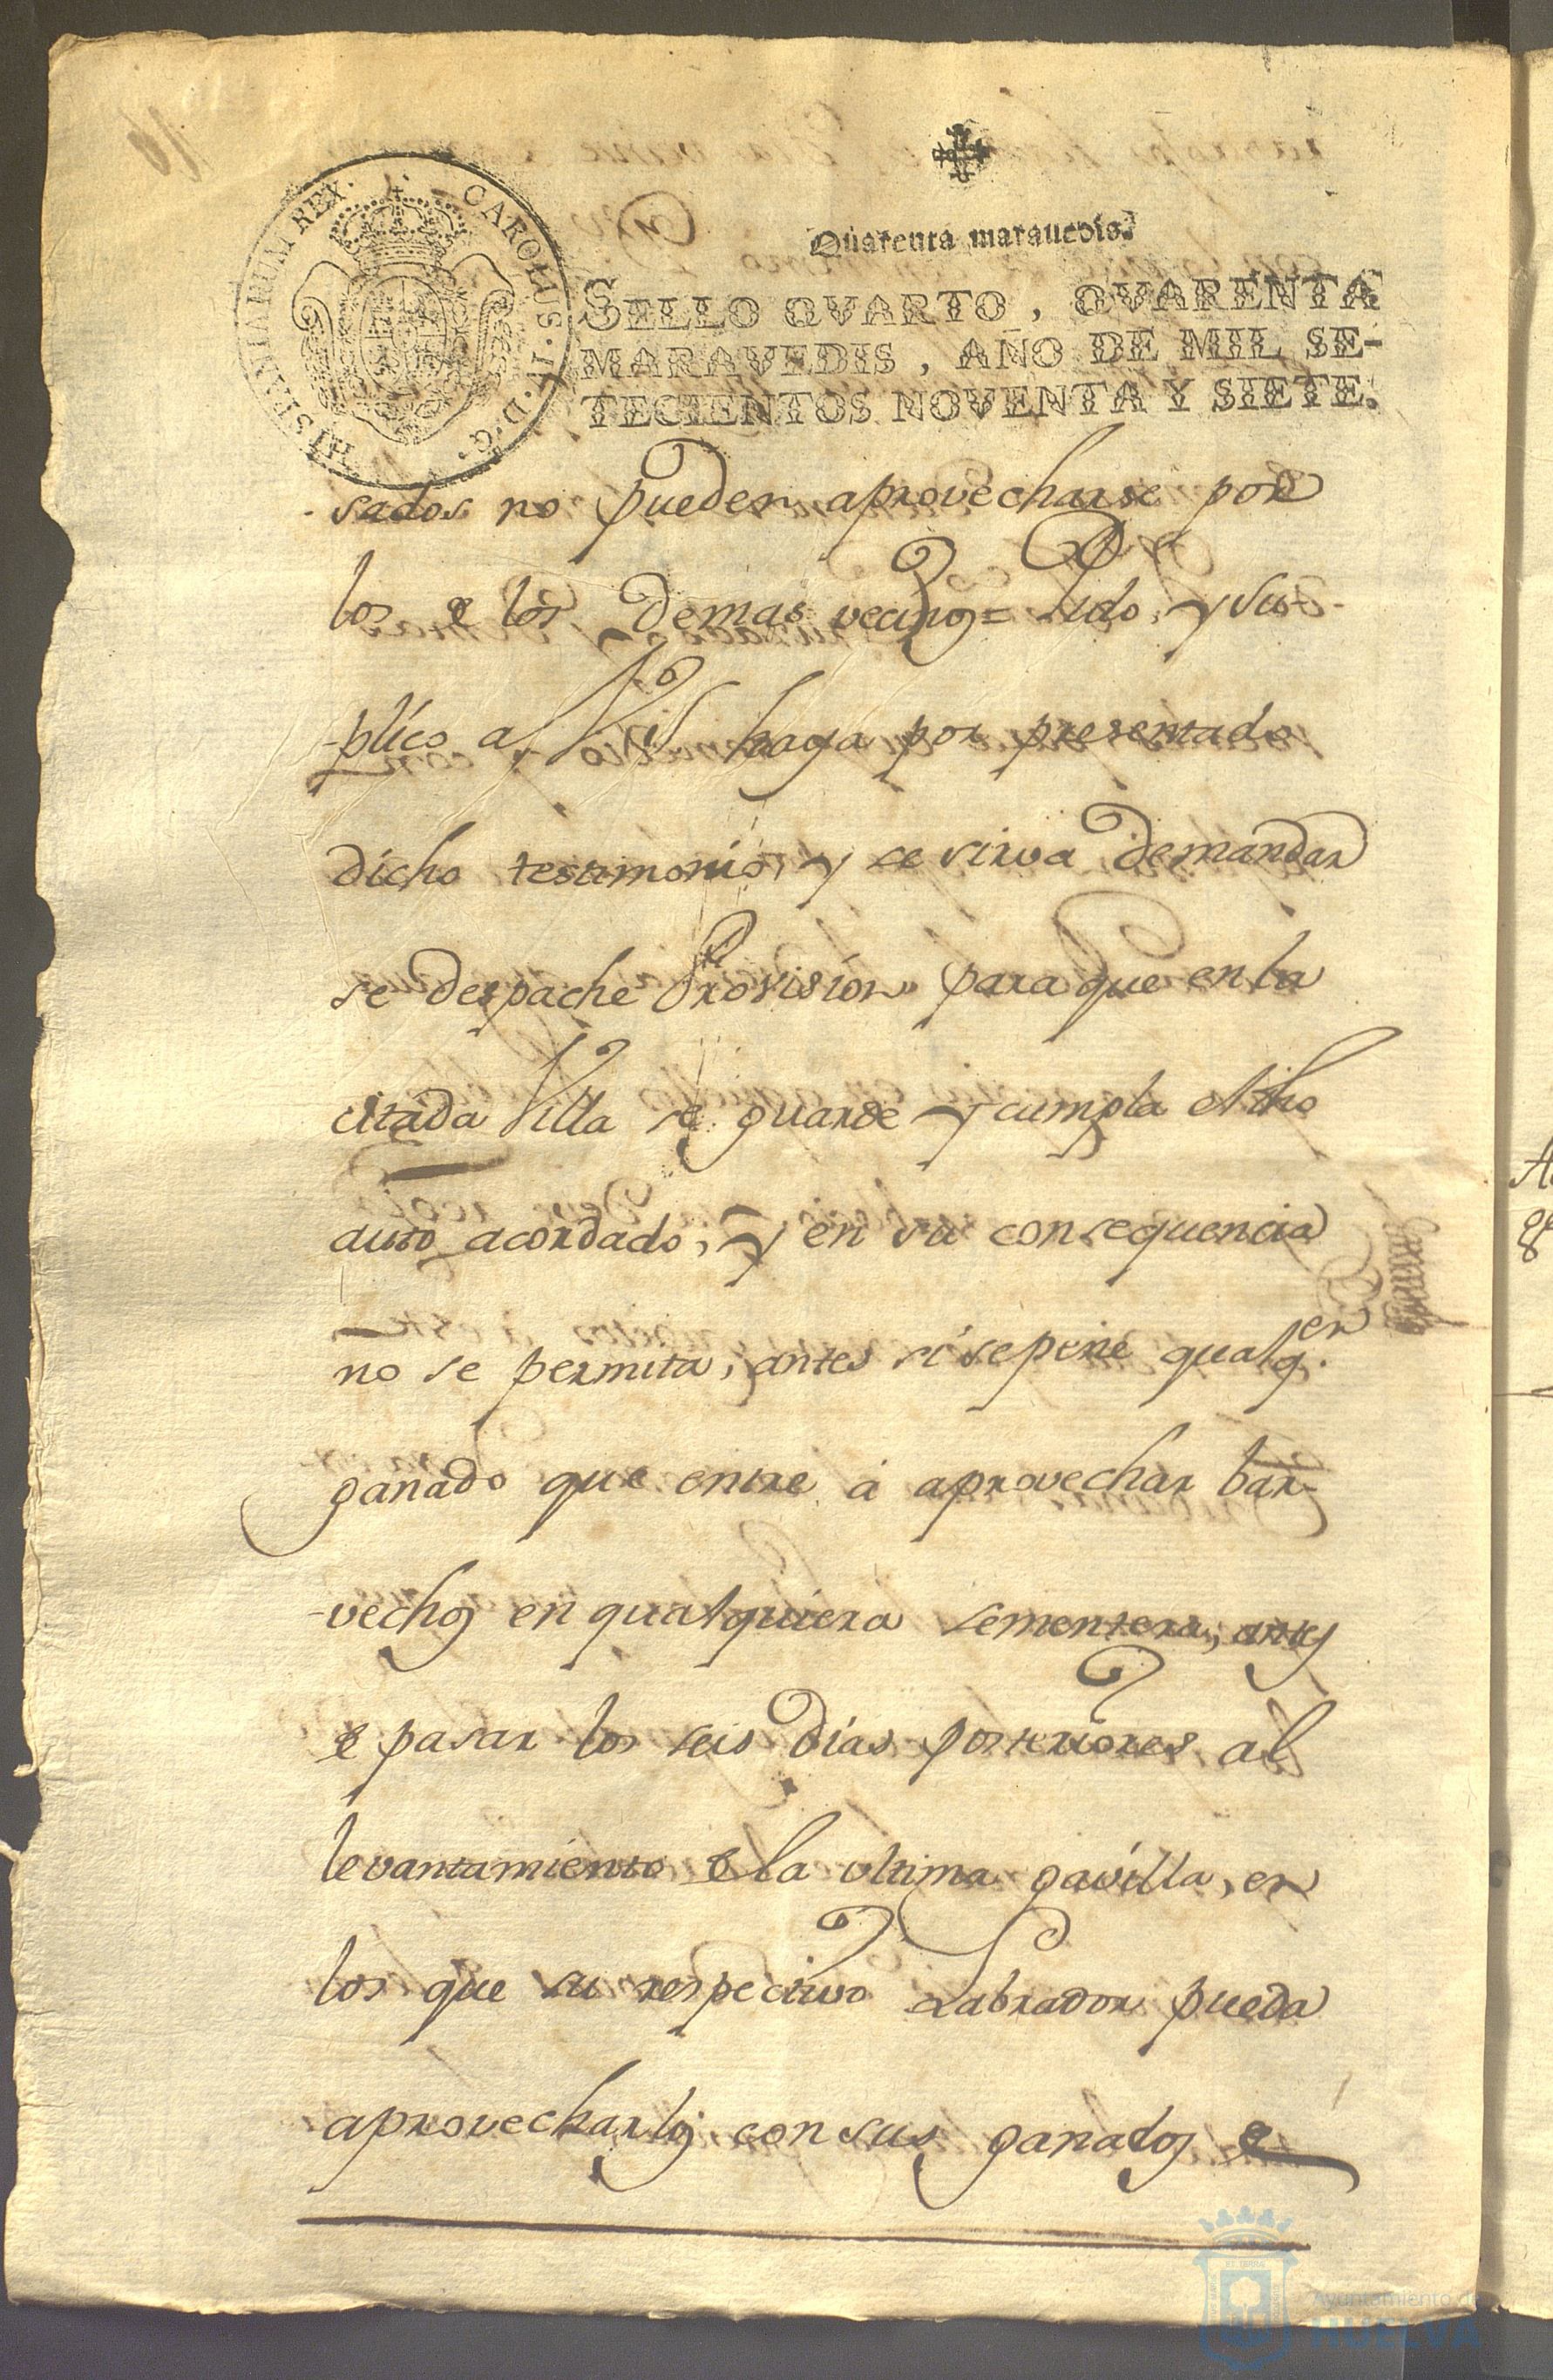 Quarenta maravedis.
SELLO QVARTO, QVARENTA
MARAVEDIS, AÑO DE MIL SE-
TECIENTOS NOVENTA Y SIETE.
CAROLUS . IV . D . G . HISPANIARUM REX .
sados no pueden aprovecharse por
los de los demas vecinos= Pido, y su-
-plico a V.S. haga por presentado
dicho testimonio, y se sirva demandar
se despache Provision para que en la
citada Villa se guarde y cumpla el dho
auto acordado, y en su consequencia
no se permita, antes si se pene qualq.er
ganado que entre á aprovechar bar-
-vechos en qualquiera sementera, antes
de pasar los seis dias posteriores al
levantamiento de la ultima gavilla, en
los que su respectivo Labrador pueda
aprovecharlos con sus ganados de
Ayuntamiento de
HUELVA